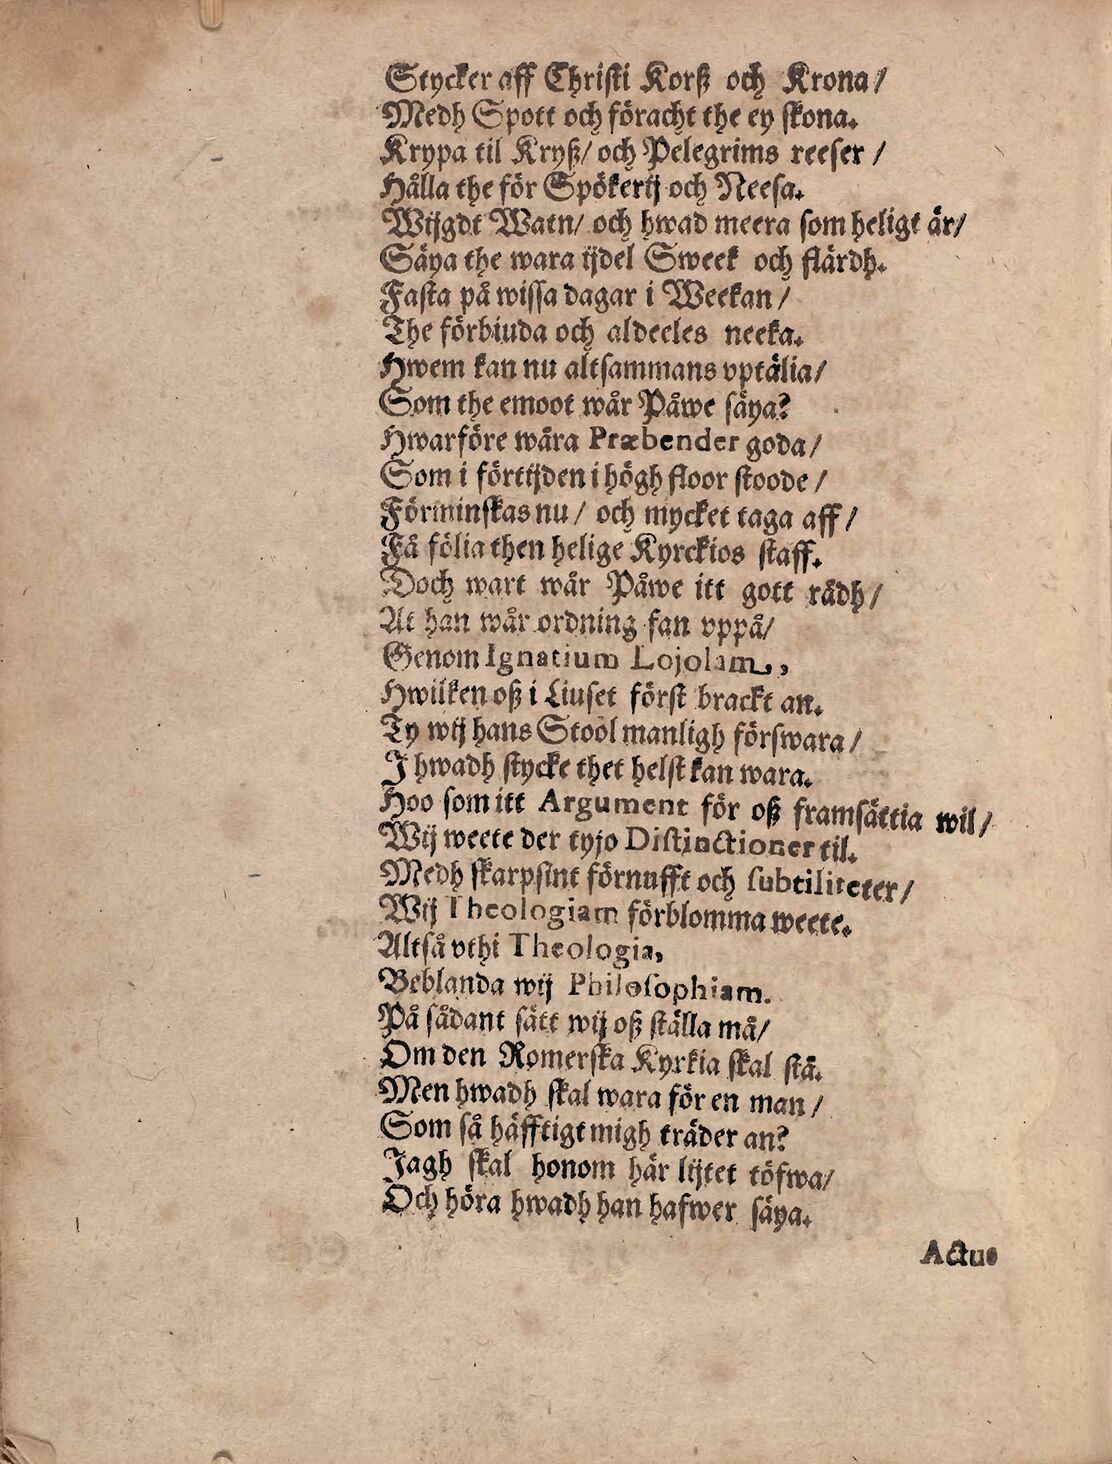 Stycker aff Christi Korß och Krona/
Medh Spott och föracht the ey skona.
Krypa til Kryß/ och Pelegrims reeser/
Hålla the för Spökerij och Neesa.
Wijgdt Watn/ och hwad meera som heligt är/
Säya the wara ijdel Sweek och flärdh.
Fasta på wissa dagar i Weekan/
The förbiuda och aldeeles neeka.
Hwem kan nu altsammans vptälia/
Som the emoot wår Påwe säya?
Hwarföre wåra Præbender goda/
Som i förtijden i högh floor stoode/
Förminskas nu/ och mycket taga aff/
Få fölia then helige Kyrckios staff.
Doch wart wår Påwe itt gott rådh/
At han wår ordning fan vppå/
Genom Ignatium Lojolam,
Hwilken oß i Liuset först brackt an.
Ty wij hans Stool manligh förswara/
I hwadh stycke thet helst kan wara.
Hoo som itt Argument för oß framsättia wil/
Wij weete der tyjo Distinctioner til.
Medh skarpsint förnufft och subtiliteter/
Wij Theologiam förblomma weete.
Altså vthi Theologia,
Beblanda wij Philosophiam.
På sådant sätt wij oß ställa må/
Om den Romerska Kyrkia skal stå.
Men hwadh skal wara för en man/
Som så häfftigt migh träder an?
Jagh skal honom här lijtet töfwa/
Och höra hwadh han hafwer säya.
Actus